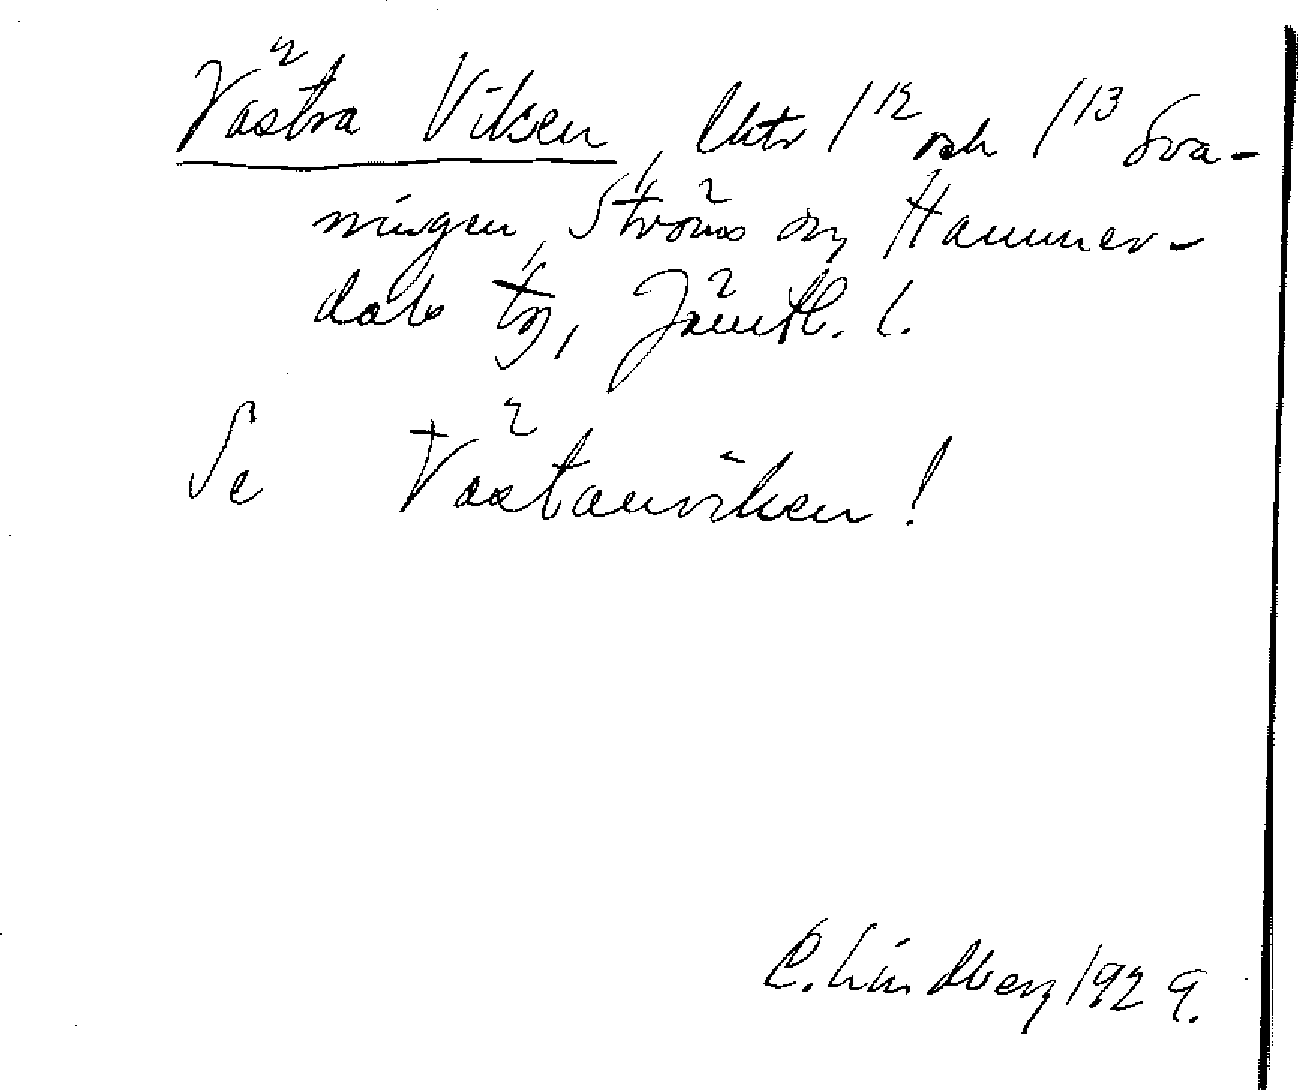 Västra Viken, lhtr 1¹² och 1¹³ Sva-
ningen, Ströms sn, Hammer-
dals tg, Jämtl. l.
Se Västanviken!
C. Lindberg 1929.